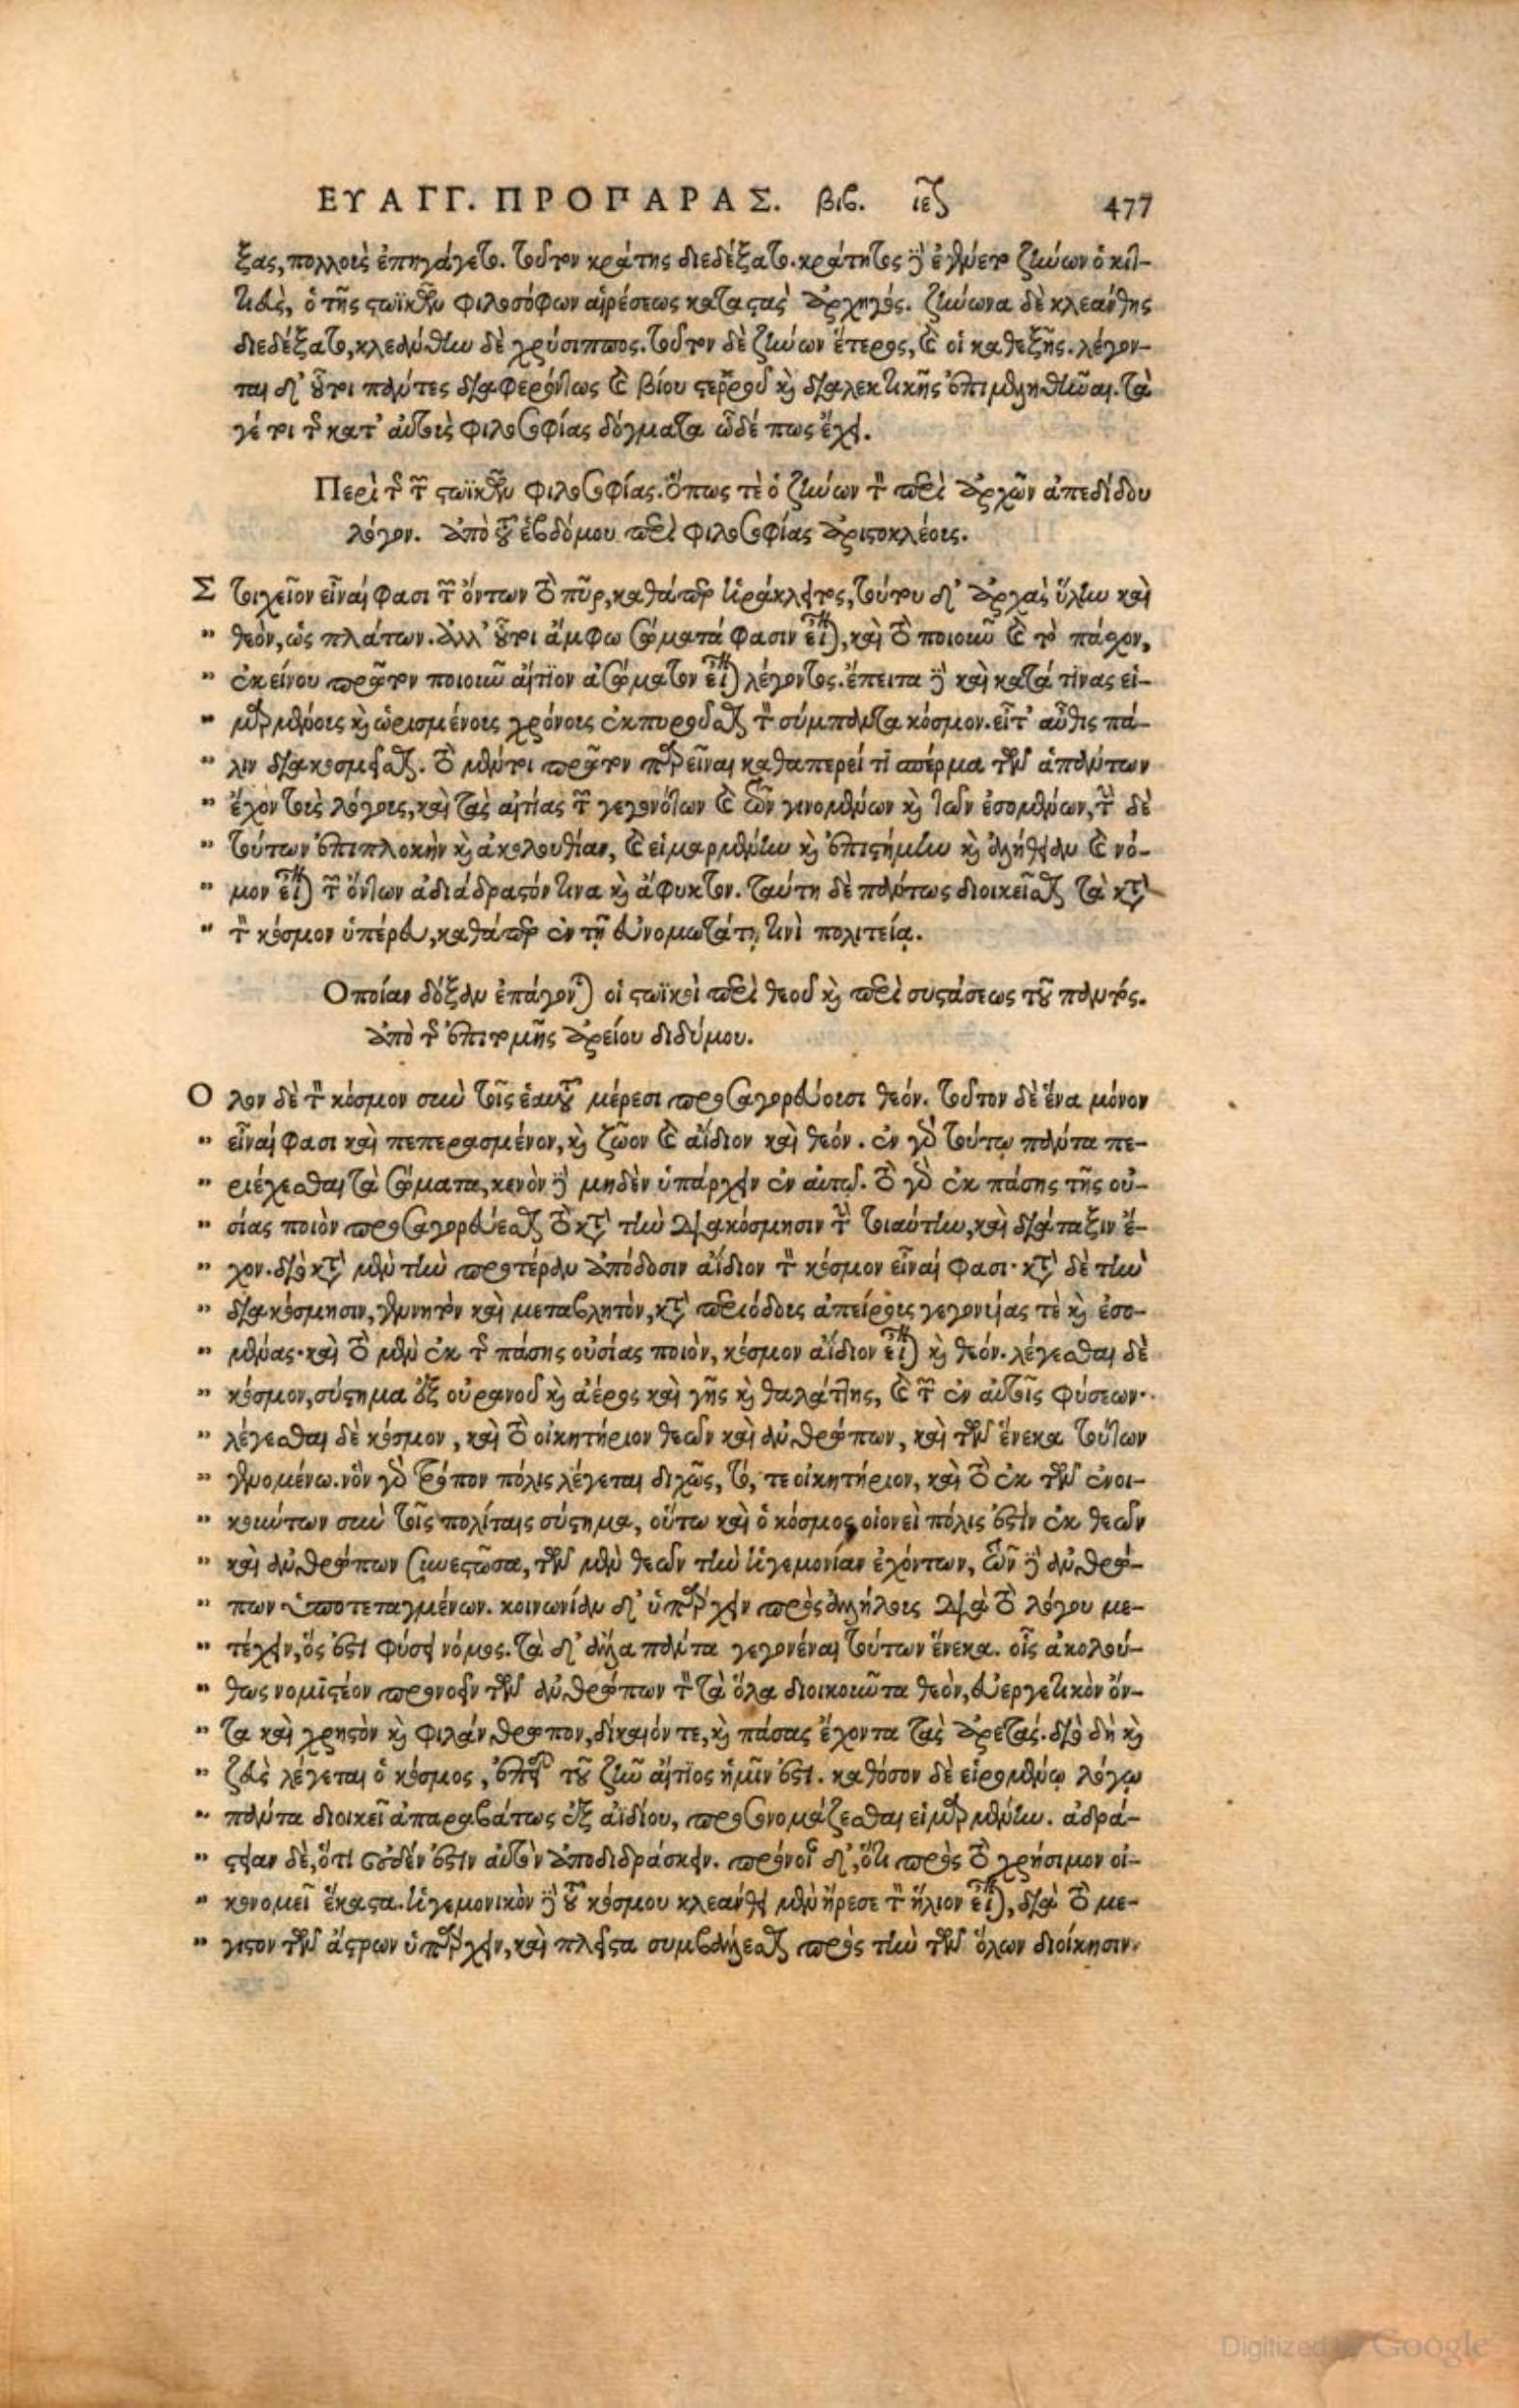 ΕΥΑΓΓ. ΠΡΟΠΑΡΑΣ. βιβ. ιε 477
ξας, πολλοὺς ἐπηγάγετο. τοῦτον κράτης διεδέξατο. κράτητος δὲ ἐγένετο ζήνων ὁ κιτ-
τιεὺς, ὁ τῆς στωϊκῶν φιλοσόφων αἱρέσεως καταστὰς ἀρχηγός. ζήνωνα δὲ κλεάνθης
διεδέξατο, κλεάνθην δὲ χρύσιππος. τοῦτον δὲ ζήνων ἕτερος, καὶ οἱ καθεξῆς. λέγον-
ται δ' οὗτοι πάντες διαφερόντως καὶ βίου στερροῦ καὶ διαλεκτικῆς ἐπιμεληθῆναι. τὰ
γέ τοι τῆς κατ' αὐτοὺς φιλοσοφίας δόγματα ὧδέ πως ἔχει.
Περὶ τῆς τῶν στωϊκῶν φιλοσοφίας. Ὅπως τὲ ὁ ζήνων τὸν περὶ ἀρχῶν ἀπεδίδου
λόγον. ἀπὸ τοῦ ἑβδόμου περὶ φιλοσοφίας ἀριστοκλέους.
Στοιχεῖον εἶναί φασι τῶν ὄντων τὸ πῦρ, καθάπερ ἡράκλειτος, τούτου δ' ἀρχὰς ὕλην καὶ
" θεὸν, ὡς πλάτων. ἀλλ' οὗτοι ἄμφω σώματά φασιν εἶναι, καὶ τὸ ποιοῦν καὶ τὸ πάσχον,
" ἐκείνου πρῶτον ποιοῦν αἴτιον ἀσώματον εἶναι λέγοντος. ἔπειτα δὲ καὶ κατά τινας εἱ-
" μαρμένους καὶ ὡρισμένους χρόνους ἐκπυροῦσθαι τὸν σύμπαντα κόσμον. εἶτ' αὖθις πά-
" λιν διακοσμεῖσθαι. τὸ μέντοι πρῶτον πῦρ εἶναι καθαπερεί τι σπέρμα τῶν ἁπάντων
" ἔχον τοὺς λόγους, καὶ τὰς αἰτίας τῶν γεγονότων καὶ τῶν γινομένων καὶ τῶν ἐσομένων, τὴν δὲ
" τούτων ἐπιπλοκὴν καὶ ἀκολουθίαν, καὶ εἱμαρμένην καὶ ἐπιστήμην καὶ ἀλήθειαν καὶ νό-
" μον εἶναι τῶν ὄντων ἀδιάδραστόν τινα καὶ ἄφυκτον. ταύτῃ δὲ πάντως διοικεῖσθαι τὰ κατὰ
" τὸν κόσμον ὑπέρευ, καθάπερ ἐν τῇ εὐνομωτάτῃ τινὶ πολιτείᾳ.
Οποίαν δόξαν ἐπάγονται οἱ στωϊκοὶ περὶ θεοῦ καὶ περὶ συστάσεως τοῦ παντός.
ἀπὸ τῆς ἐπιτομῆς ἀρείου διδύμου.
Ολον δὲ τὸν κόσμον σὺν τοῖς ἑαυτοῦ μέρεσι προσαγορεύουσι θεόν. τοῦτον δὲ ἕνα μόνον
" εἶναί φασι καὶ πεπερασμένον, καὶ ζῶον καὶ ἀΐδιον καὶ θεόν. ἐν γὰρ τούτῳ πάντα πε-
" ριέχεσθαι τὰ σώματα, κενὸν δὲ μηδὲν ὑπάρχειν ἐν αὐτῷ. τὸ γὰρ ἐκ πάσης τῆς οὐ-
" σίας ποιὸν προσαγορεύεσθαι τὸ κατὰ τὴν διακόσμησιν τὴν τοιαύτην, καὶ διάταξιν ἔ-
" χον. διὸ κατὰ μὲν τὴν προτέραν ἀπόδοσιν ἀΐδιον τὸν κόσμον εἶναί φασι· κατὰ δὲ τὴν
" διακόσμησιν, γεννητὸν καὶ μεταβλητὸν, κατὰ περιόδους ἀπείρους γεγονυίας τὲ καὶ ἐσο-
" μένας· καὶ τὸ μὲν ἐκ τῆς πάσης οὐσίας ποιὸν, κόσμον ἀΐδιον εἶναι καὶ θεόν. λέγεσθαι δὲ
" κόσμον, σύστημα ἐξ οὐρανοῦ καὶ ἀέρος καὶ γῆς καὶ θαλάττης, καὶ τῶν ἐν αὐτοῖς φύσεων·
" λέγεσθαι δὲ κόσμον, καὶ τὸ οἰκητήριον θεῶν καὶ ἀνθρώπων, καὶ τῶν ἕνεκα τούτων
" γενομένω. ὃν γὰρ τρόπον πόλις λέγεται διχῶς, τό, τε οἰκητήριον, καὶ τὸ ἐκ τῶν ἐνοι-
" κούντων σὺν τοῖς πολίταις σύστημα, οὕτω καὶ ὁ κόσμος οἱονεὶ πόλις ἐστὶν ἐκ θεῶν
" καὶ ἀνθρώπων συνεστῶσα, τῶν μὲν θεῶν τὴν ἡγεμονίαν ἐχόντων, τῶν δὲ ἀνθρώ-
" πων ὑποτεταγμένων. κοινωνίαν δ' ὑπάρχειν πρὸς ἀλλήλους διὰ τὸ λόγου με-
" τέχειν, ὅς ἐστι φύσει νόμος. τὰ δ' ἄλλα πάντα γεγονέναι τούτων ἕνεκα. οἷς ἀκολού-
" θως νομιστέον προνοεῖν τῶν ἀνθρώπων τὸν τὰ ὅλα διοικοῦντα θεὸν, εὐεργετικὸν ὄν-
" τα καὶ χρηστὸν καὶ φιλάνθρωπον, δίκαιόν τε, καὶ πάσας ἔχοντα τὰς ἀρετάς. διὸ δὴ καὶ
" ζεὺς λέγεται ὁ κόσμος, ἐπειδὴ τοῦ ζῆν αἴτιος ἡμῖν ἐστι. καθόσον δὲ εἰρομένῳ λόγῳ
" πάντα διοικεῖ ἀπαραβάτως ἐξ ἀϊδίου, προσονομάζεσθαι εἱμαρμένην. ἀδρά-
" στειαν δὲ, ὅτι οὐδέν ἐστιν αὐτὸν ἀποδιδράσκειν. πρόνοιαν δ', ὅτι πρὸς τὸ χρήσιμον οἰ-
" κονομεῖ ἕκαστα. ἡγεμονικὸν δὲ τοῦ κόσμου κλεάνθει μὲν ἤρεσε τὸν ἥλιον εἶναι, διὰ τὸ μέ-
" γιστον τῶν ἄστρων ὑπάρχειν, καὶ πλεῖστα συμβάλλεσθαι πρὸς τὴν τῶν ὅλων διοίκησιν,
Digitized by Google